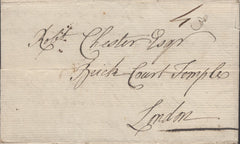 4
Robt. Chester Esqr
Brick Court Temple
London